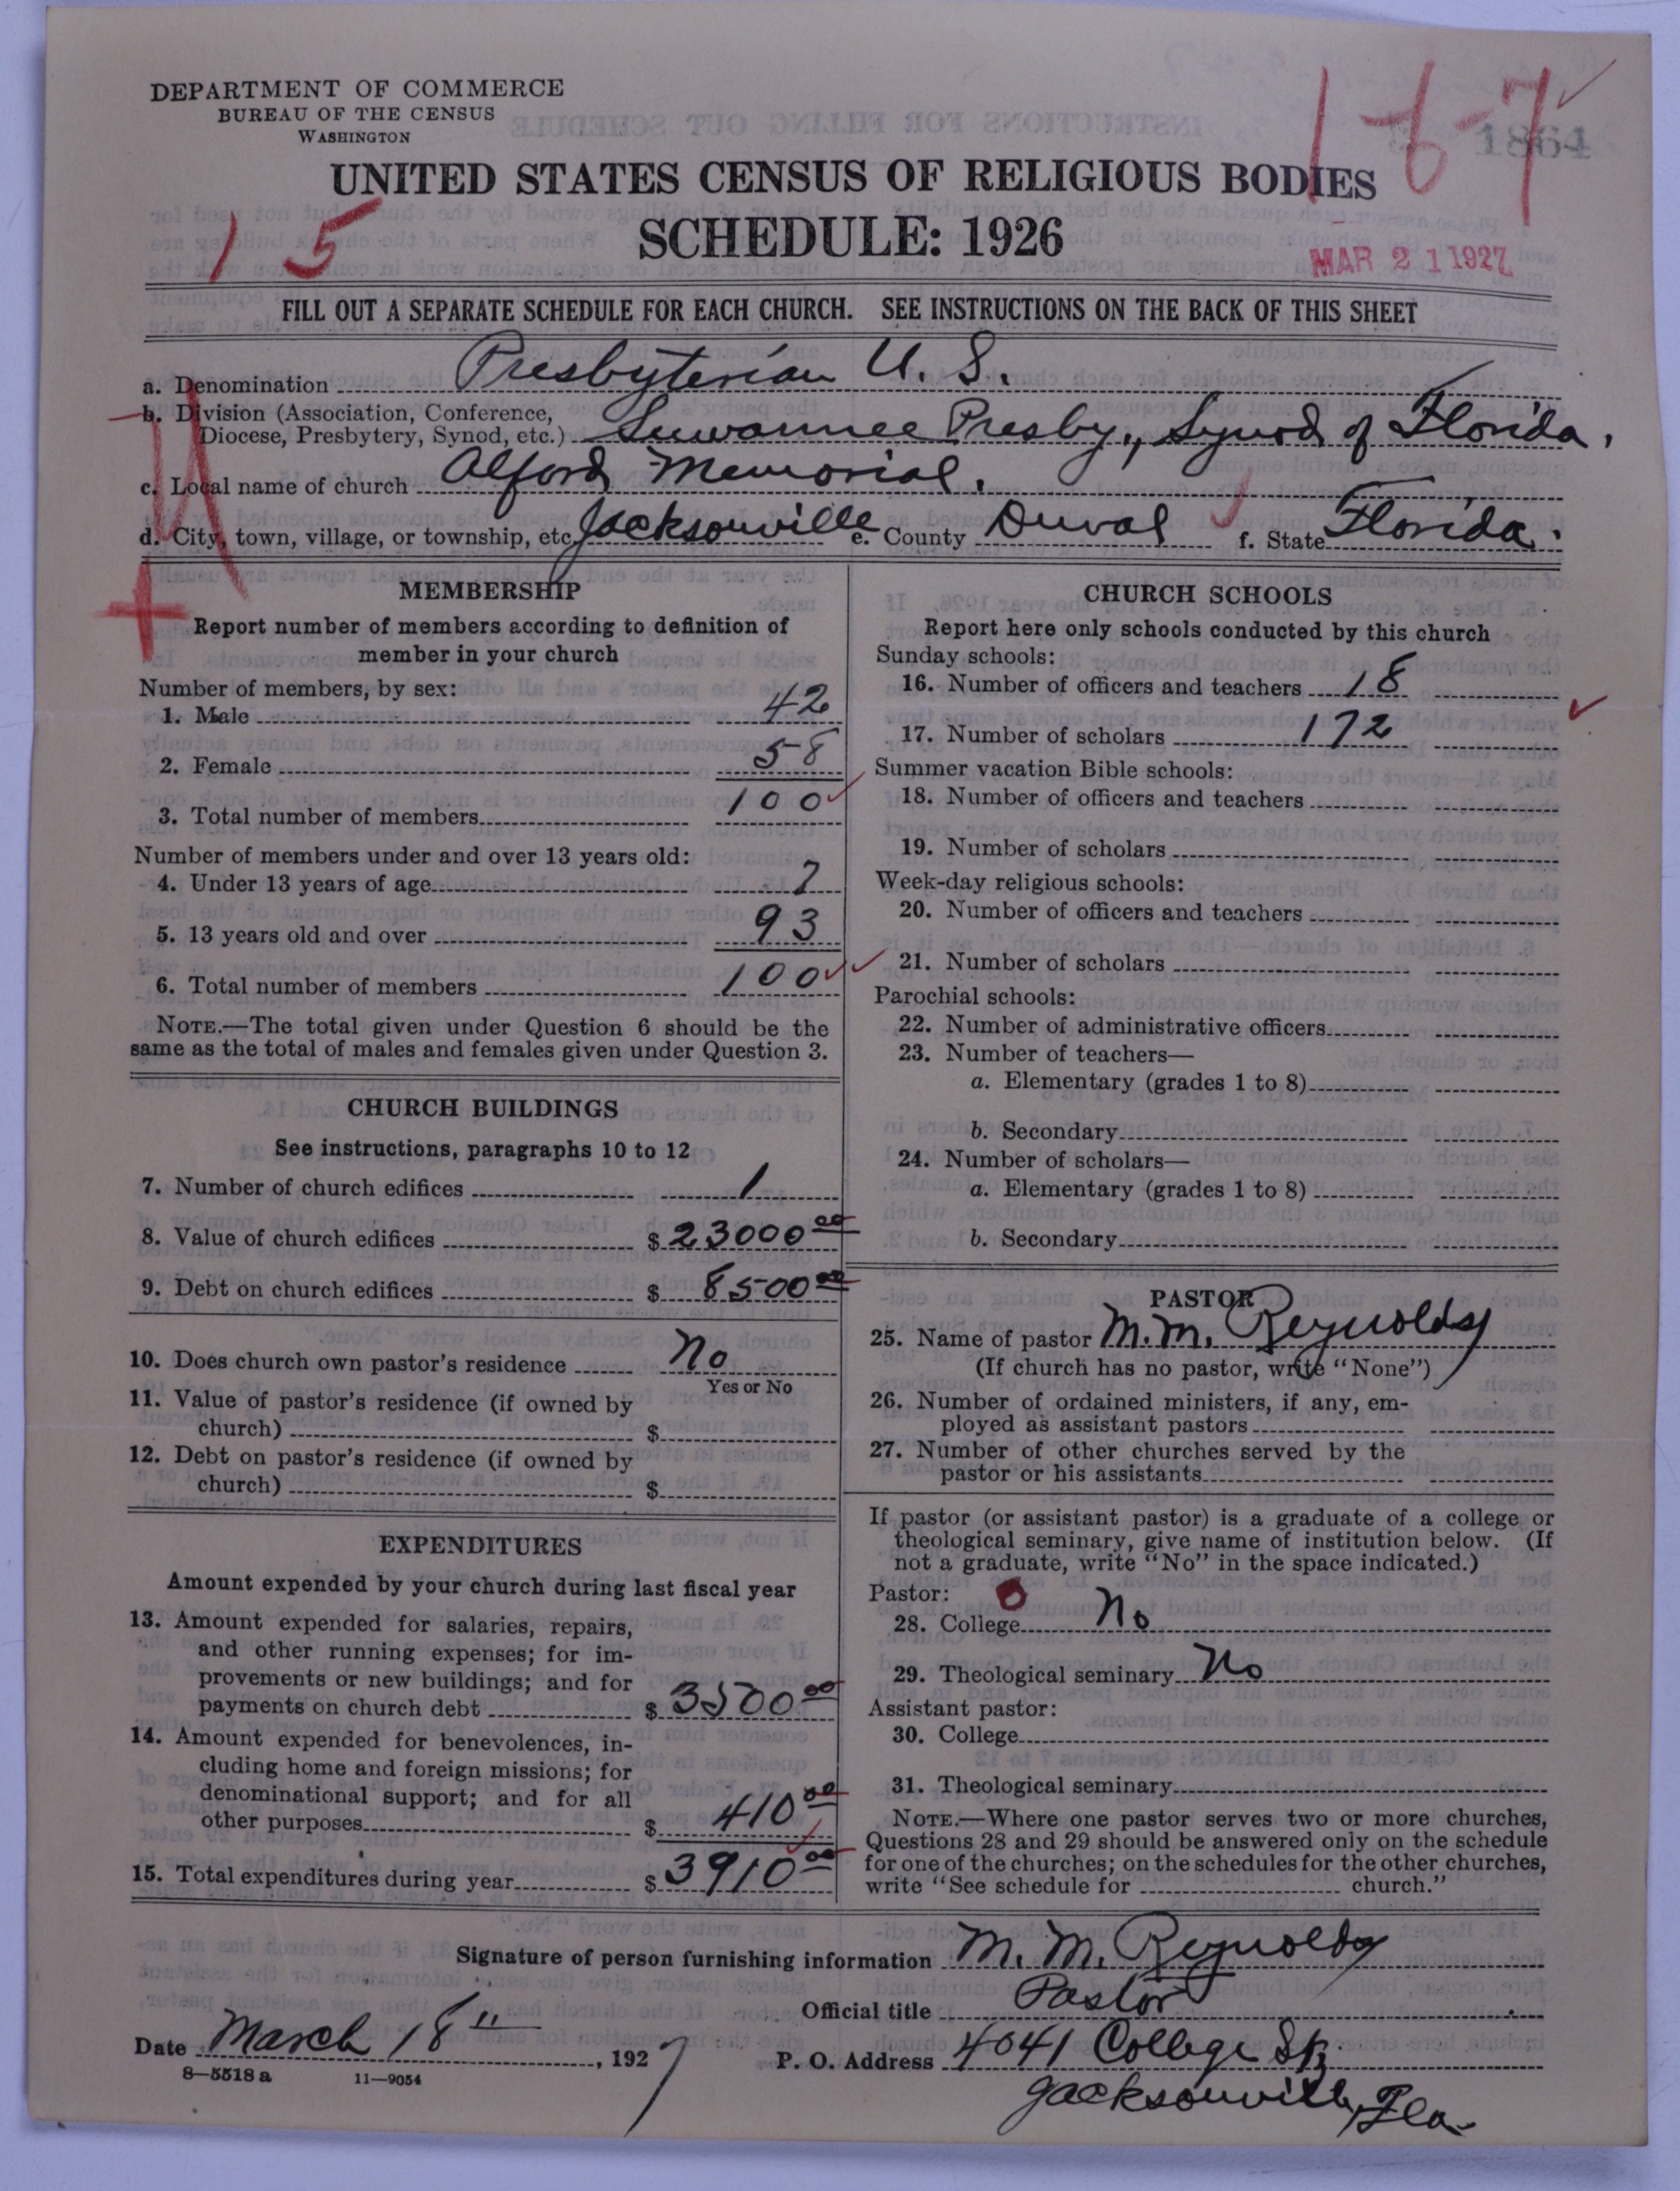 DEPARTMENT OF COMMERCE
BUREAU OF THE CENSUS
WASHINGTON
1-6-7
1864
UNITED STATES CENSUS OF RELIGIOUS BODIES
15
SCHEDULE: 1926
MAR 21 1927
FILL OUT A SEPARATE SCHEDULE FOR EACH CHURCH. SEE INSTRUCTIONS ON THE BACK OF THIS SHEET
a. Denomination Presbyterian U. S.
b. Division (Association, Conference,
Diocese, Presbytery, Synod, etc.) Suwannee Presby., Synod of Florida.
c. Local name of church Alford Memorial.
d. City, town, village, or township, etc. Jacksonville e. County Duval f. State Florida.
MEMBERSHIP
Report number of members according to definition of
member in your church
Number of members, by sex:
1. Male 42
2. Female 58
3. Total number of members 100
Number of members under and over 13 years old:
4. Under 13 years of age 7
5. 13 years old and over 93
6. Total number of members 100
NOTE.—The total given under Question 6 should be the
same as the total of males and females given under Question 3.
CHURCH BUILDINGS
See instructions, paragraphs 10 to 12
7. Number of church edifices 1
8. Value of church edifices $ 23000 00
9. Debt on church edifices $ 8500 00
10. Does church own pastor's residence No
Yes or No
11. Value of pastor's residence (if owned by
church) $
12. Debt on pastor's residence (if owned by
church) $
EXPENDITURES
Amount expended by your church during last fiscal year
13. Amount expended for salaries, repairs,
and other running expenses; for im-
provements or new buildings; and for
payments on church debt $ 3500 00
14. Amount expended for benevolences, in-
cluding home and foreign missions; for
denominational support; and for all
other purposes $ 410 00
15. Total expenditures during year $ 3910 00
CHURCH SCHOOLS
Report here only schools conducted by this church
Sunday schools:
16. Number of officers and teachers 18
17. Number of scholars 172
Summer vacation Bible schools:
18. Number of officers and teachers
19. Number of scholars
Week-day religious schools:
20. Number of officers and teachers
21. Number of scholars
Parochial schools:
22. Number of administrative officers
23. Number of teachers—
a. Elementary (grades 1 to 8)
b. Secondary
24. Number of scholars—
a. Elementary (grades 1 to 8)
b. Secondary
PASTOR
25. Name of pastor M. M. Reynolds
(If church has no pastor, write "None")
26. Number of ordained ministers, if any, em-
ployed as assistant pastors
27. Number of other churches served by the
pastor or his assistants
If pastor (or assistant pastor) is a graduate of a college or
theological seminary, give name of institution below. (If
not a graduate, write "No" in the space indicated.)
Pastor: 0
28. College No
29. Theological seminary No
Assistant pastor:
30. College
31. Theological seminary
NOTE.—Where one pastor serves two or more churches,
Questions 28 and 29 should be answered only on the schedule
for one of the churches; on the schedules for the other churches,
write "See schedule for church."
Signature of person furnishing information M. M. Reynolds
Official title Pastor
Date March 18", 1927
P. O. Address 4041 College St.
Jacksonville, Fla.
8—5518 a 11—9054